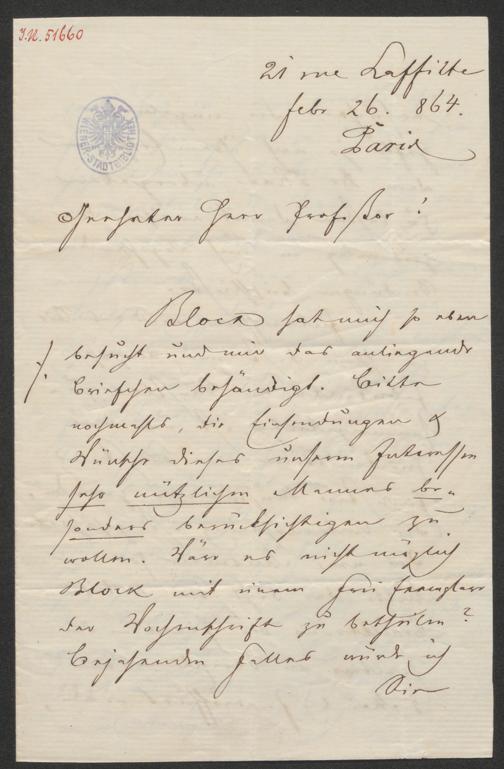 J.N. 51660
WIENER-STADTBIBLIOTHEK
21 rue Laffitte
febr 26. 864.
Paris
Geehrter Herr Professor!
Block hat mich so eben
besucht und mir das anliegende
Briefchen behändigt. Bitte
nochmals, die Einsendungen &
Wünsche dieses unseren Interessen
sehr nützlichen Mannes be-
sonders berücksichtigen zu
wollen. Wäre es nicht möglich
Block mit einem Frei Exemplare
der Wochenschrift zu betheilen?
Bejahenden Falles würde ich
Sie